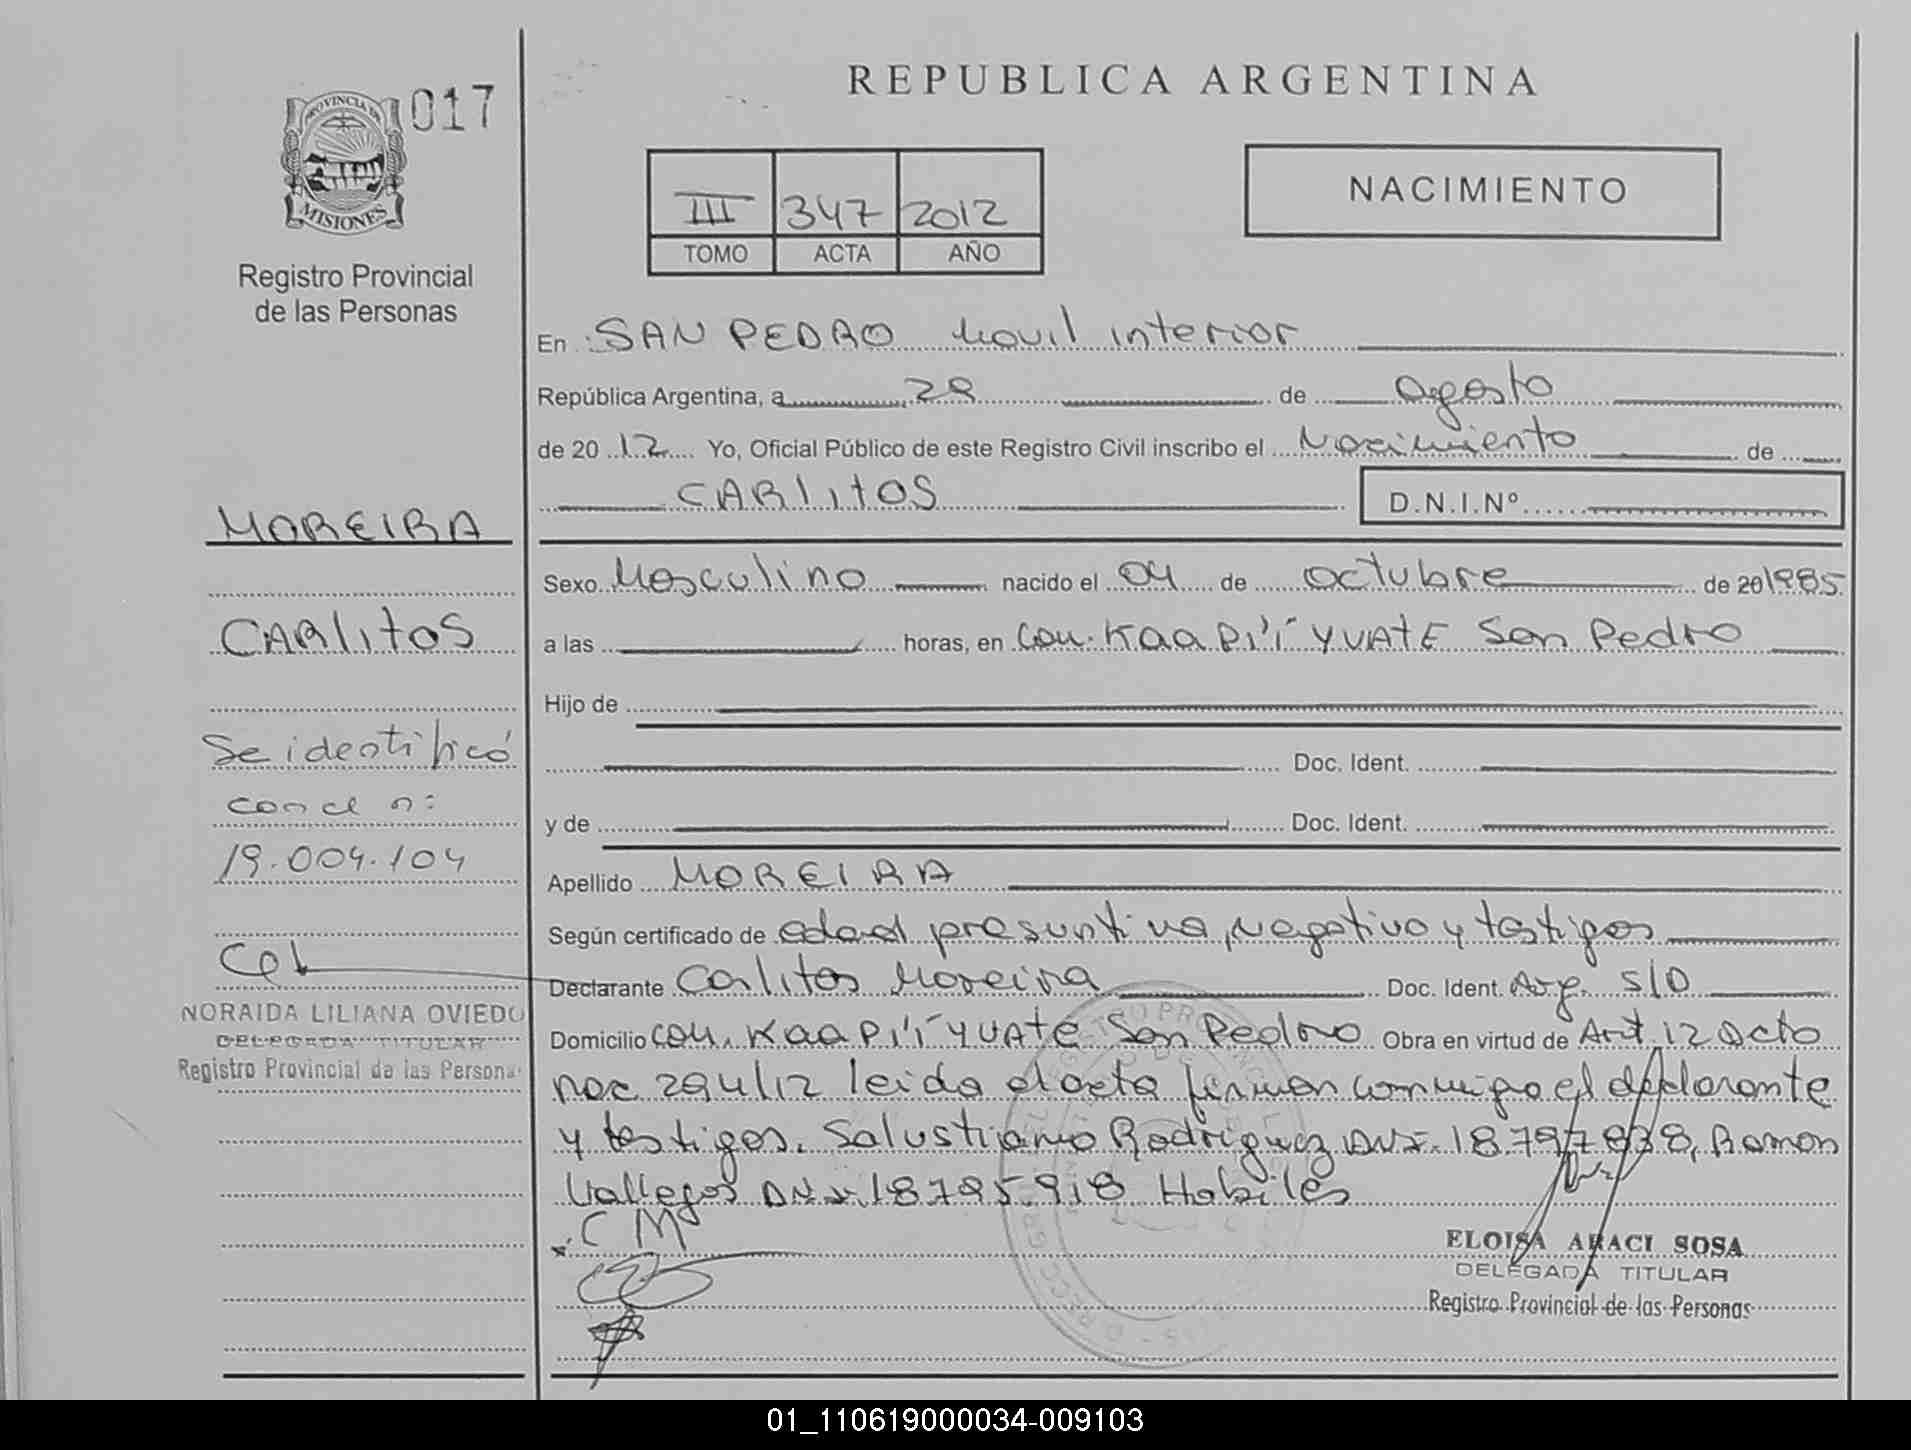 REPUBLICA ARGENTINA
017
PROVINCIA DE
MISIONES
Registro Provincial
de las Personas
III 347 2012
TOMO ACTA AÑO
NACIMIENTO
En SAN PEDRO Movil interior
República Argentina, a 28 de Agosto
de 20 12 Yo, Oficial Público de este Registro Civil inscribo el Nacimiento de
CARlitOS
D.N.I.Nº
MOREIRA
CARlitoS
Se identificó
con el n:
19.004.104
NORAIDA LILIANA OVIEDO
DELEGADA TITULAR
Registro Provincial de las Persona
Sexo Masculino nacido el 04 de octubre de 20 1985
a las horas, en Com. KAA PI'Í YVATE San Pedro
Hijo de
Doc. Ident.
y de Doc. Ident.
Apellido MOREIRA
Según certificado de edad presuntiva, negativo y testigos
Declarante Carlitos Moreira Doc. Ident. Arg. S/D
Domicilio Com. KAA PI'Í YVATE San Pedro Obra en virtud de Art. 12 Dcto
nac 294/12 leida el acta firman conmigo el declarante
y testigos. Salustiano Rodriguez DNI. 18.797.838, Ramon
Vallegos DNI. 18795918 Habiles
C M
ELOISA ARACI SOSA
DELEGADA TITULAR
Registro Provincial de las Personas
01_110619000034-009103